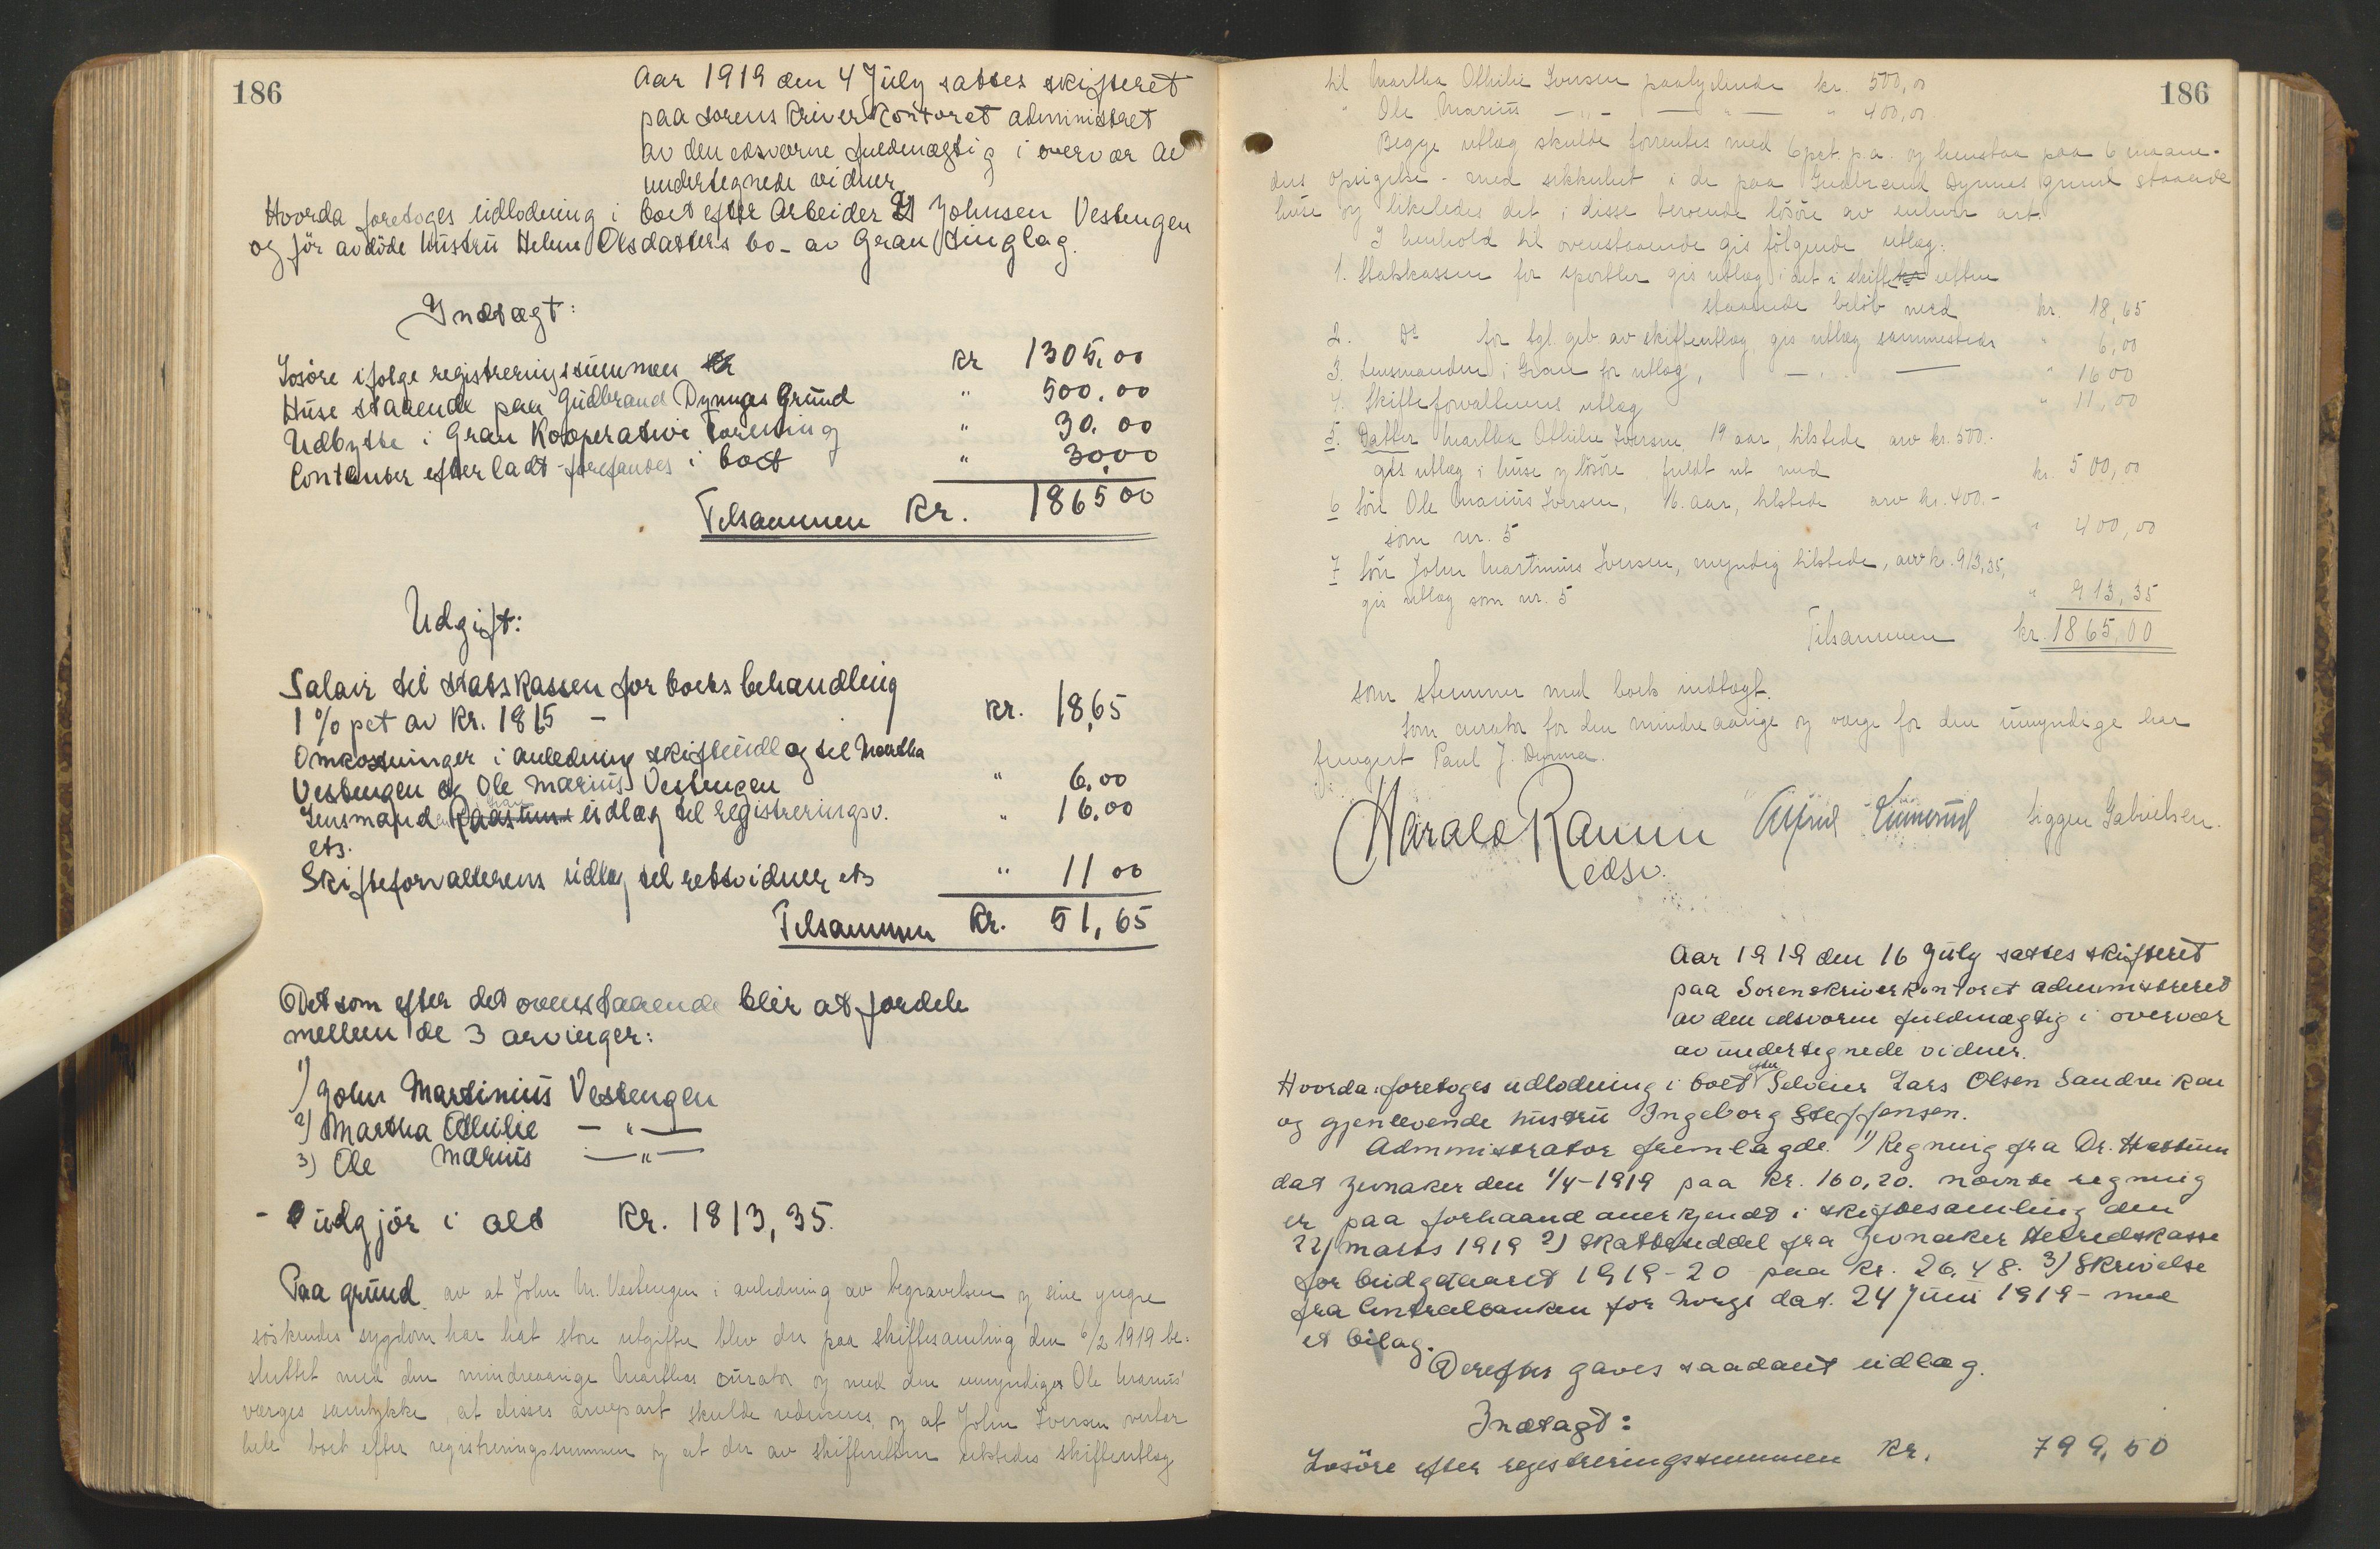 186
Aar 1919 den 4 July sattes skifteret
paa sorenskriverkontoret administret
av den edsvorne fuldmægtig i overvær av
undertegnede vidner
Hvorda foretoges udlodning i boet efter Arbeider Johnsen Vestengen
og før avdøde hustru Helene Olsdatters bo - av Gran tinglag.
Indtægt:
Løsøre ifølge registreringssummen kr 1305,00
Huse staaende paa Gudbrand Dynnas Grund " 500.00
Udbytte i Gran Kooperative Forening " 30.00
Contanter efterladt forefandes i boet " 30,00
Tilsammen Kr. 1865,00
Udgift:
Salair til statskassen for boets behandling
1% pct av Kr. 1815 - kr. 18,65
Omkostninger i anledning skifteudlæg til Martha
Vestengen og Ole Marius Vestengen " 6,00
Lensmand udlæg til registreringsv. " 16.00
ets.
Skifteforvalterens udlæg til retsvidner ets " 11 00
Tilsammen Kr. 51,65
Det som efter det ovenstaaende blir at fordele
mellem de 3 arvinger:
1) John Martinius Vestengen
2) Martha Othilie — " —
3) Ole Marius — " —
- udgjör i alt Kr. 1813,35.
Paa grund av at John M. Vestengen i anledning av begravelsen og sine yngre
söskendes sygdom har hat store utgifter blev der paa skiftesamling den 6/2 1919 be-
sluttet med den mindreaarige Marthas curator og med den umyndiges Ole Marius'
værges samtykke, at disses arvepart skulde reduceres, og at John Iversen overtar
hele boet efter registreringssummen og at der av skifteretten utstedes skifteutlæg
186
til Martha Othilie Iversen paalydende kr. 500,00
" Ole Marius — " — — " — " 400,00
Begge utlæg skulde forrentes med 6 pct. p.a. og henstaa paa 6 maane-
ders opsigelse - med sikkerhet i de paa Gudbrand Dynnas grund staaende
huse og likeledes det i disse beroende lösöre av enhver art.
I henhold til ovenstaaende gis fölgende utlæg:
1. Statskassen for sportler gis utlæg i det i skifteretten
staaende belöb med kr. 18,65
2. Do for tgl. geb av skifteutlæg gis utlæg sammesteds " 6,00
3. Lensmanden i Gran for utlæg, — " — " 16 00
4. Skifteforvalterens utlæg " 11,00
5. Datter Martha Othilie Iversen, 19 aar tilstede arv kr. 500.-
gis utlæg i huse og lösöre fuldt ut med kr. 500,00
6 Sön Ole Marius Iversen, 16. aar, tilstede arv kr. 400.-
som nr. 5 " 400,00
7 Sön John Martinius Iversen, myndig tilstede, arv kr. 913,35,
gis utlæg som nr. 5 " 913,35
Tilsammen kr. 1865,00
som stemmer med boets indtægt.
Som curator for den mindreaarige og værge for den umyndige har
fungert Paul J. Dynna.
Harald Ramm Alfred Siggen Gabrielsen.
edsv.
Aar 1919 den 16 July sattes skifteret
paa Sorenskriverkontoret administreret
av den edsvorne fuldmægtig i overvær
av undertegnede vidner.
Hvorda: foretoges udlodning i boet efter Selveier Lars Olsen Sandvikan
og gjenlevende hustru Ingeborg Steffensen.
Administrator fremlagde. 1) Regning fra Dr.
dat Jevnaker den 1/4-1919 paa Kr. 160,20. nævnte regning
er paa forhaand anerkjendt i skiftesamling den
22/ marts 1919 2) Skatteseddel fra Jevnaker Herredskasse
for budgetaaret 1919-20 paa Kr. 26,48. 3) Skrivelse
fra Centralbanken for Norge dat. 24 Juni 1919 - med
et bilag.
Derefter gaves saadant udlæg.
Indtægt:
Løsøre efter registreringssummen Kr. 799,50